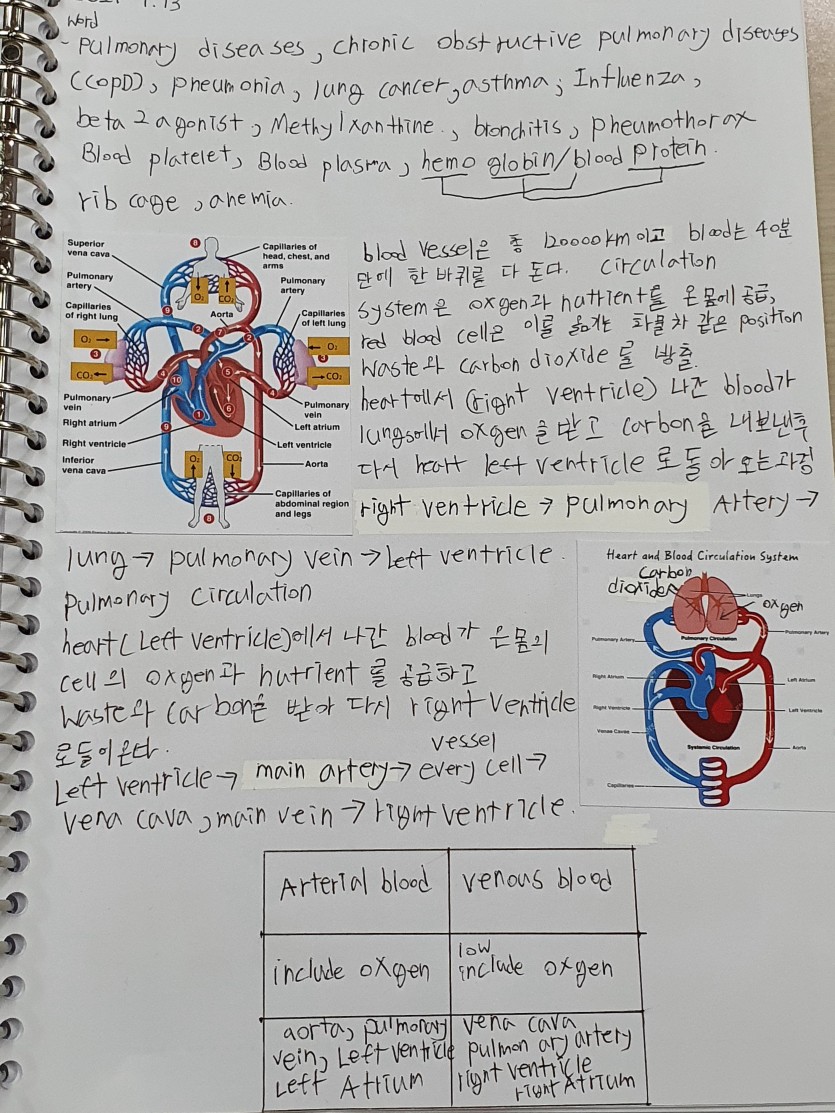 1.13
word
- Pulmonary diseases, chronic obstructive pulmonary diseases
(COPD), pneumonia, lung cancer, asthma, Influenza,
beta 2 agonist, Methylxanthine., bronchitis, pheumothorax
Blood platelet, Blood plasma, hemo globin/blood protein.
rib cage, anemia.
Superior vena cava
Pulmonary artery
Capillaries of right lung
O₂
3
CO₂
Pulmonary vein
Right atrium
Right ventricle
Inferior vena cava
8
Capillaries of head, chest, and arms
O₂ CO₂
Aorta
Pulmonary artery
Capillaries of left lung
O₂
3
CO₂
Pulmonary vein
Left atrium
Left ventricle
Aorta
O₂ CO₂
Capillaries of abdominal region and legs
8
9
2
7
2
4
10
5
4
1
6
9
blood vessel은 총 120000km이고 blood는 40분
만에 한 바퀴를 다 돈다. circulation
system은 oxgen과 nutrient를 온몸에 공급,
red blood cell은 이를 옮기는 화물차 같은 position
waste와 carbon dioxide를 방출.
heart에서 (right ventricle) 나간 blood가
lungs에서 oxgen을 받고 carbon을 내보낸후
다시 heart left ventricle로 돌아 오는 과정
right ventricle → pulmonary Artery →
lung → pulmonary vein → left ventricle.
Pulmonary circulation
heart(Left ventricle)에서 나간 blood가 온몸의
cell의 oxgen과 nutrient를 공급하고
waste와 carbon을 받아 다시 right ventricle
vessel
Left ventricle → main artery → every cell →
vena cava, main vein → right ventricle.
Heart and Blood Circulation System
carbon
dioxide
Lungs
oxgen
Pulmonary Artery
Pulmonary Circulation
Pulmonary Artery
Right Atrium
Left Atrium
Right Ventricle
Left Ventricle
Venae Cavae
Systemic Circulation
Aorta
Capillaries
Arterial blood
venous blood
include oxgen
low
include oxgen
aorta, pulmonary
vein, Left ventricle
Left Atrium
vena cava
pulmon ary artery
right ventricle
right Atrium